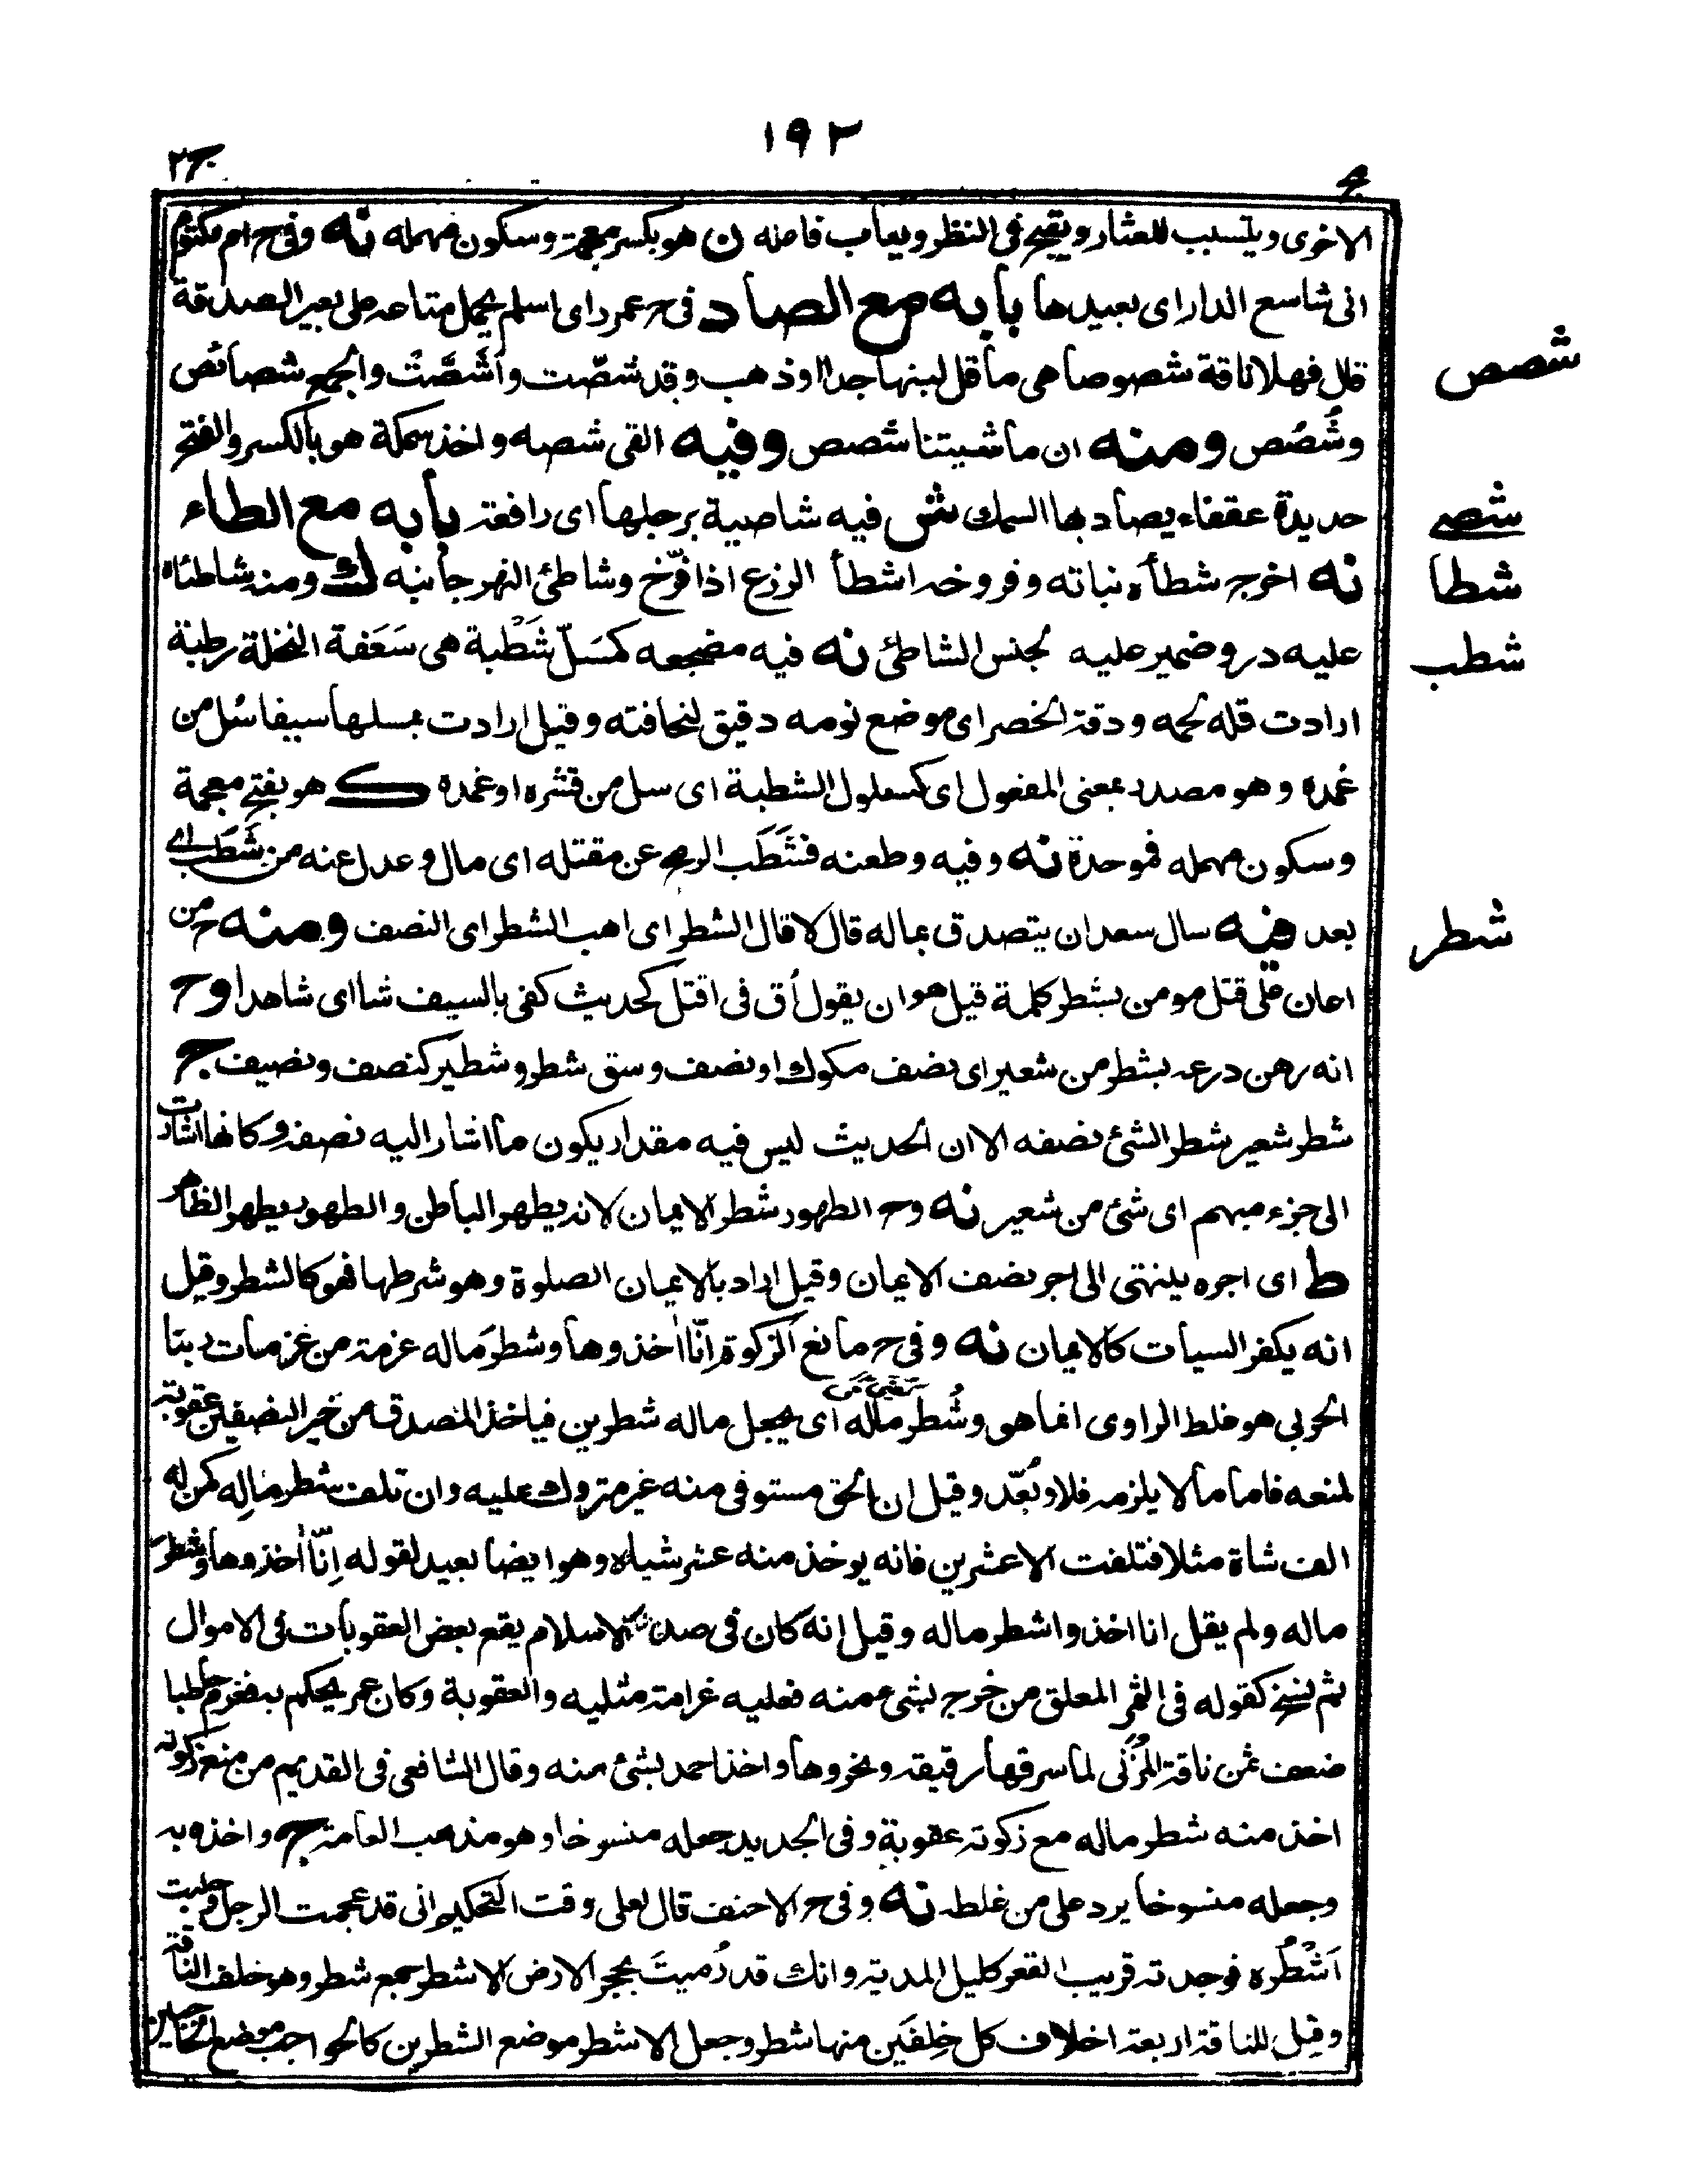 ١٩٢
ج٢
الاخرى ويتسبب للعثار ويقبح فى النظر ويعاب فاعله ن هو بكسر معجمة وسكون مهمله نه وفى ح ام مكتوم
انى شاسع الدار اى بعيدها بابه مع الصاد فى ح عمر راى اسلم يحمل متاعه على بعير الصدقة
قال فهلا ناقة شصوصا هى ما قل لبنها جدا او ذهب وقد شصّت واَشَصَّتْ والجمع شصائص
شصص
وشُصُص ومنه ان ماشيتنا شصص وفيه القى شصه واخذ سمكة هو بالكسر والفتح
حديدة عقفاء يصاد بها السمك ش فيه شاصية برجلها اى رافعة بابه مع الطاء
شصى
نه اخرج شطأه نباته وفروخه اشطأ الزرع اذا فرّخ وشاطئ النهر جانبه ك ومنه شاطئاه
شطا
عليه در وضمير عليه لجنس الشاطئ نه فيه مضجعه كمَسَلّ شَطْبة هى سَعَفة النخلة رطبة
شطب
ارادت قلة لحمه ودقة الخصر اى موضع نومه دقيق لنحافته وقيل ارادت بمسلها سيفا سُل من
غمده وهو مصدر بمعنى المفعول اى كمسلول الشطبة اى سل من قشره او غمده ك هو بفتح معجمة
وسكون مهمله فموحدة نه وفيه وطعنه فشَطَبَ الرمح عن مقتله اى مال وعدل عنه من شَطَب اى
بعد فيه سال سعد ان يتصدق بماله قال لا قال الشطر اى اهب الشطر اى النصف ومنه ح من
شطر
اعان على قتل مومن بشطر كلمة قيل هو ان يقول اُق فى اقتل كحديث كفى بالسيف شا اى شاهدا وح
انه رهن درعه بشطر من شعير اى نصف مكوك او نصف وسق شطر وشطير كنصف ونصيف ج
شطر شعير شطر الشئ نصفه الا ان الحديث ليس فيه مقدار يكون ما اشار اليه نصفه وكانها اشارت
الى جزء مبهم اى شئ من شعير نه وح الطهور شطر الايمان لانه يطهر الباطن والطهور يطهر الظاهر
ط اى اجره ينتهى الى اجر نصف الايمان وقيل اراد بالايمان الصلوة وهو شرطها فهو كالشطر وقيل
انه يكفر السيأت كالايمان نه وفى ح مانع الزكوة اِنّا اٰخذوها وشطرَ ماله عزمة من عزمات ربنا
الحربى هو غلط الراوى انما هو وشُطر ماله اى يجعل ماله شطرين فياخذ المصدق من خير النصفين عقوبة
لمنعه فاما ما لا يلزمه فلا وبُعّد وقيل ان الحق مستوفى منه غير متروك عليه وان تلف شطر مالِه كمن له
الف شاة مثلا فتلفت الا عشرين فانه يوخذ منه عشر شياه وهو ايضا بعيد لقوله اِنّا اٰخذوها وشطرَ
ماله ولم يقل انا اخذوا شطر ماله وقيل انه كان فى صدر الاسلام يقع بعض العقوبات فى الاموال
ثم نسخ كقوله فى الثمر المعلق من خرج بشئ منه فعليه غرامة مثليه والعقوبة وكان عمر يحكم به فغرم حاطبا
ضعف ثمن ناقة المُزَنى لما سرقها رقيقه ونحروها واخذ احمد بشئ منه وقال الشافعى فى القديم من منع زكوته
اخذ منه شطر ماله مع زكوته عقوبة وفى الجديد جعله منسوخا وهو مذهب العامة ج واخذه به
وجعله منسوخا يرد على من غلطه نه وفى ح الاحنف قال لعلى وقت التحكيم انى قد عجمت الرجل وحلبت
اَشْطُره فوجدته قريب القعر كليل المدية وانك قد رُميتَ بحجر الارض الاشطر جمع شطر وهو خلف الناقة
وقيل للناقة اربعة اخلاف كل خِلفَين منها شطر وجعل الاشطر موضع الشطرين كالحواجب موضع الحاجبين